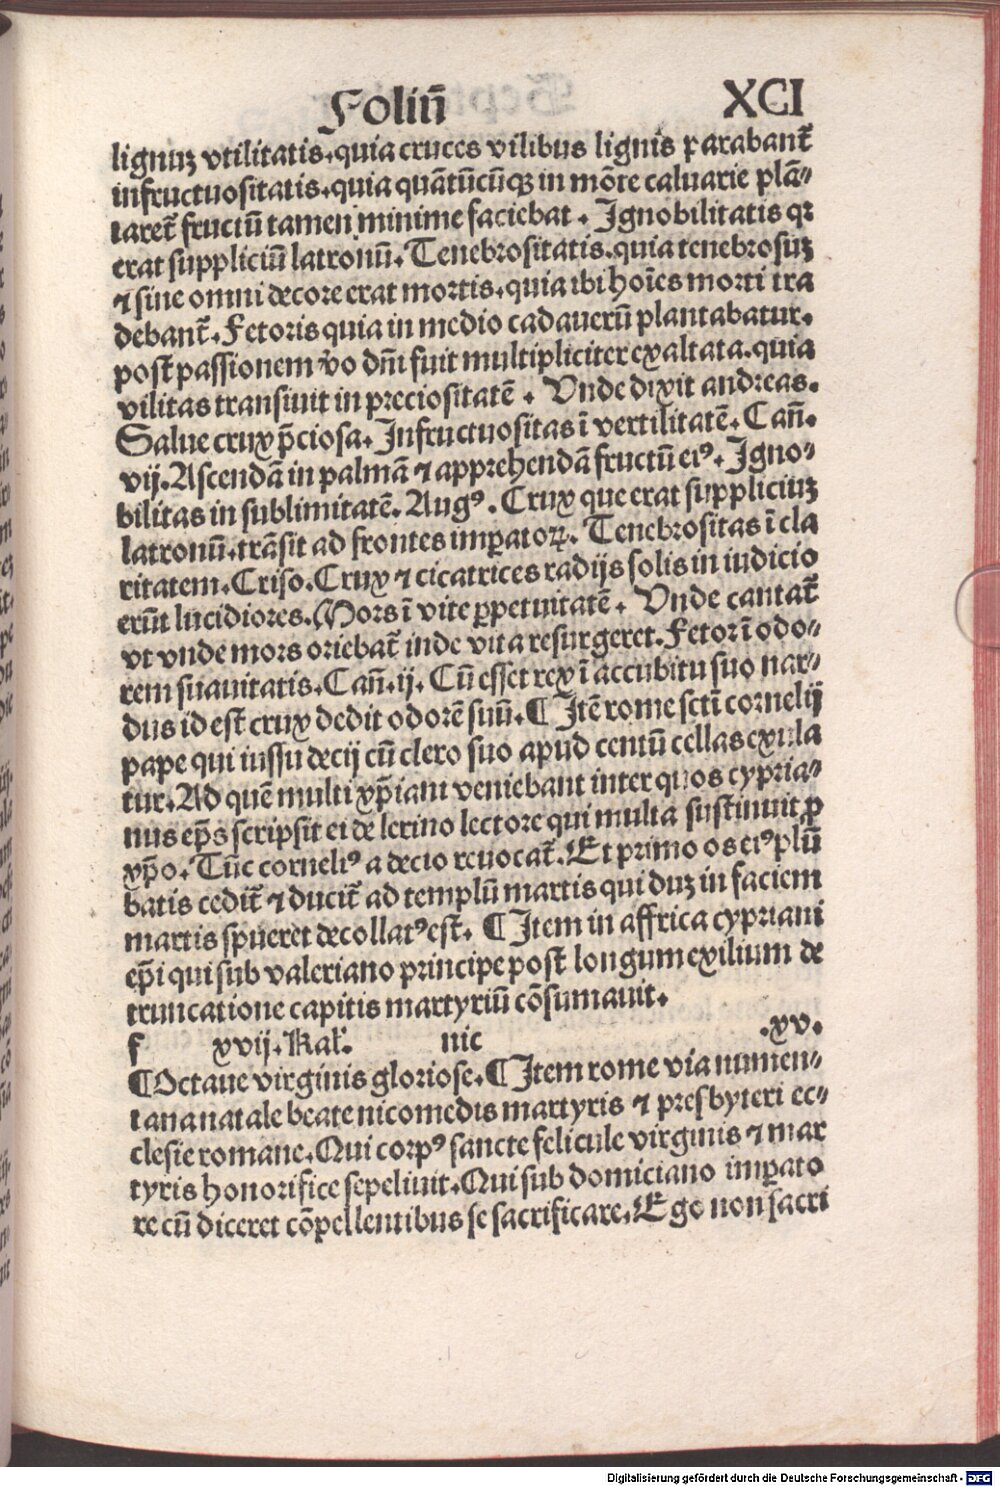 Foliū XCI
lignuꝫ vtilitatis.quia cruces vilibus lignis parabant᷑
infructuositatis.quia quātūcūqꝫ in mōte caluarie plā⸗
taret᷑ fructū tamen minime faciebat . Ignobilitatis qꝛ
erat suppliciū latronū. Tenebrositatis.quia tenebrosuꝫ
⁊ sine omni decore erat mortis.quia ibi hoīes morti tra
debant᷑. Fetoris quia in medio cadauerū plantabatur.
post passionem v̄o dn̄i fuit multipliciter exaltata.quia
vilitas transiuit in preciositatē . Vnde dixit andreas.
Salue crux p̄ciosa. Infructuositas ī vertilitatē. Can̄.
vij. Ascendā in palmā ⁊ apprehendā fructū eiꝰ. Igno⸗
bilitas in sublimitatē. Augꝰ. Crux que erat suppliciuꝫ
latronū.trāsit ad frontes imꝑatoꝝ. Tenebrositas ī cla
ritatem. Criso. Crux ⁊ cicatrices radijs solis in iudicio
erūt lucidiores. Mors ī vite ꝑpetuitatē . Vnde cantat᷑
vt vnde mors oriebat᷑ inde vita resurgeret. Fetor ī odo⸗
rem suauitatis. Can̄. ij. Cū esset rex ī accubitu suo nar⸗
dus id est crux dedit odorē suū. ¶ Itē rome sctī cornelij
pape qui iussu decij cū clero suo apud centū cellas exula
tur. Ad quē multi xp̄iani veniebant inter quos cypria⸗
nus ep̄s scripsit ei de lerino lectore qui multa sustinuit ꝓ
xp̄o. Tūc corneliꝰ a decio reuocat᷑. Et primo os eiꝰ plū
batis cedit᷑ ⁊ ducit᷑ ad templū martis qui duꝫ in faciem
martis spueret decollatꝰ est. ¶ Item in affrica cypriani
ep̄i qui sub valeriano principe post longum exilium de
truncatione capitis martyriū cōsumauit.
f xvij. Kal᷑. nic .xv.
¶ Octaue virginis gloriose. ¶ Item rome via numen⸗
tana natale beate nicomedis martyris ⁊ presbyteri ec⸗
clesie romane. Qui corpꝰ sancte felicule virginis ⁊ mar
tyris honorifice sepeliuit. Qui sub domiciano imꝑato
re cū diceret cōpellentibus se sacrificare. Ego non sacri
Digitalisierung gefördert durch die Deutsche Forschungsgemeinschaft - DFG